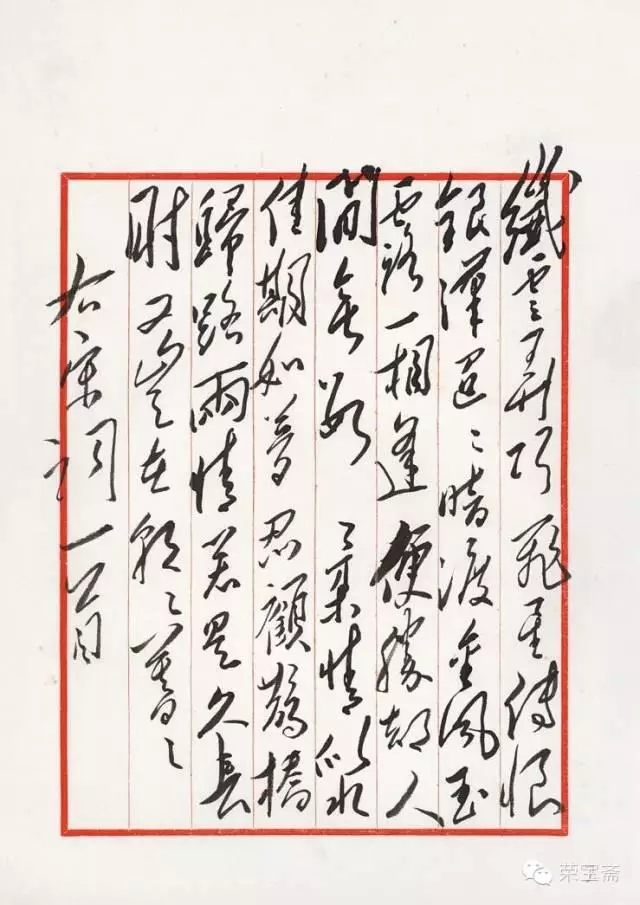 纖雲弄巧飛星傳恨
銀漢迢〻暗渡金風玉
露一相逢便勝却人
間無數柔情似水
佳期如夢忍顧鵲橋
歸路兩情若是久長
時又豈在朝〻暮〻
右宋詞一首
荣宝斋